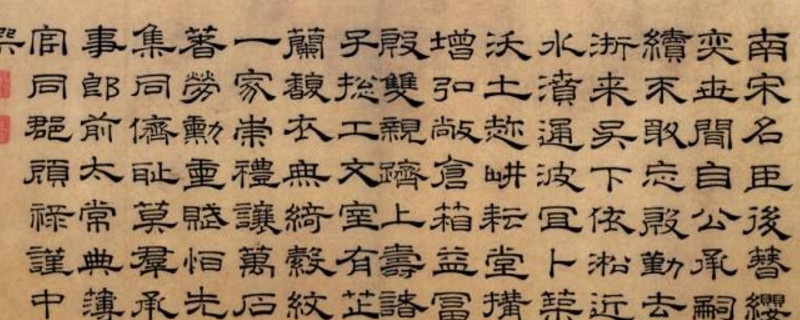 南宋名臣後簪纓
奕世聞自公承嗣
續不敢忘殷勤去
浙来吴下依淞近
水濆通波冝卜築
沃土趂畊耘堂搆
增弘敞倉箱益冨
殷雙親躋上壽諸
子㧾工文室有芷
蘭馥衣無綺縠紋
一家崇禮讓萬石
著勞勳重賦恒先
集同儕耻莫羣承
事郎前太常典薄
官同郡顧祿謹中